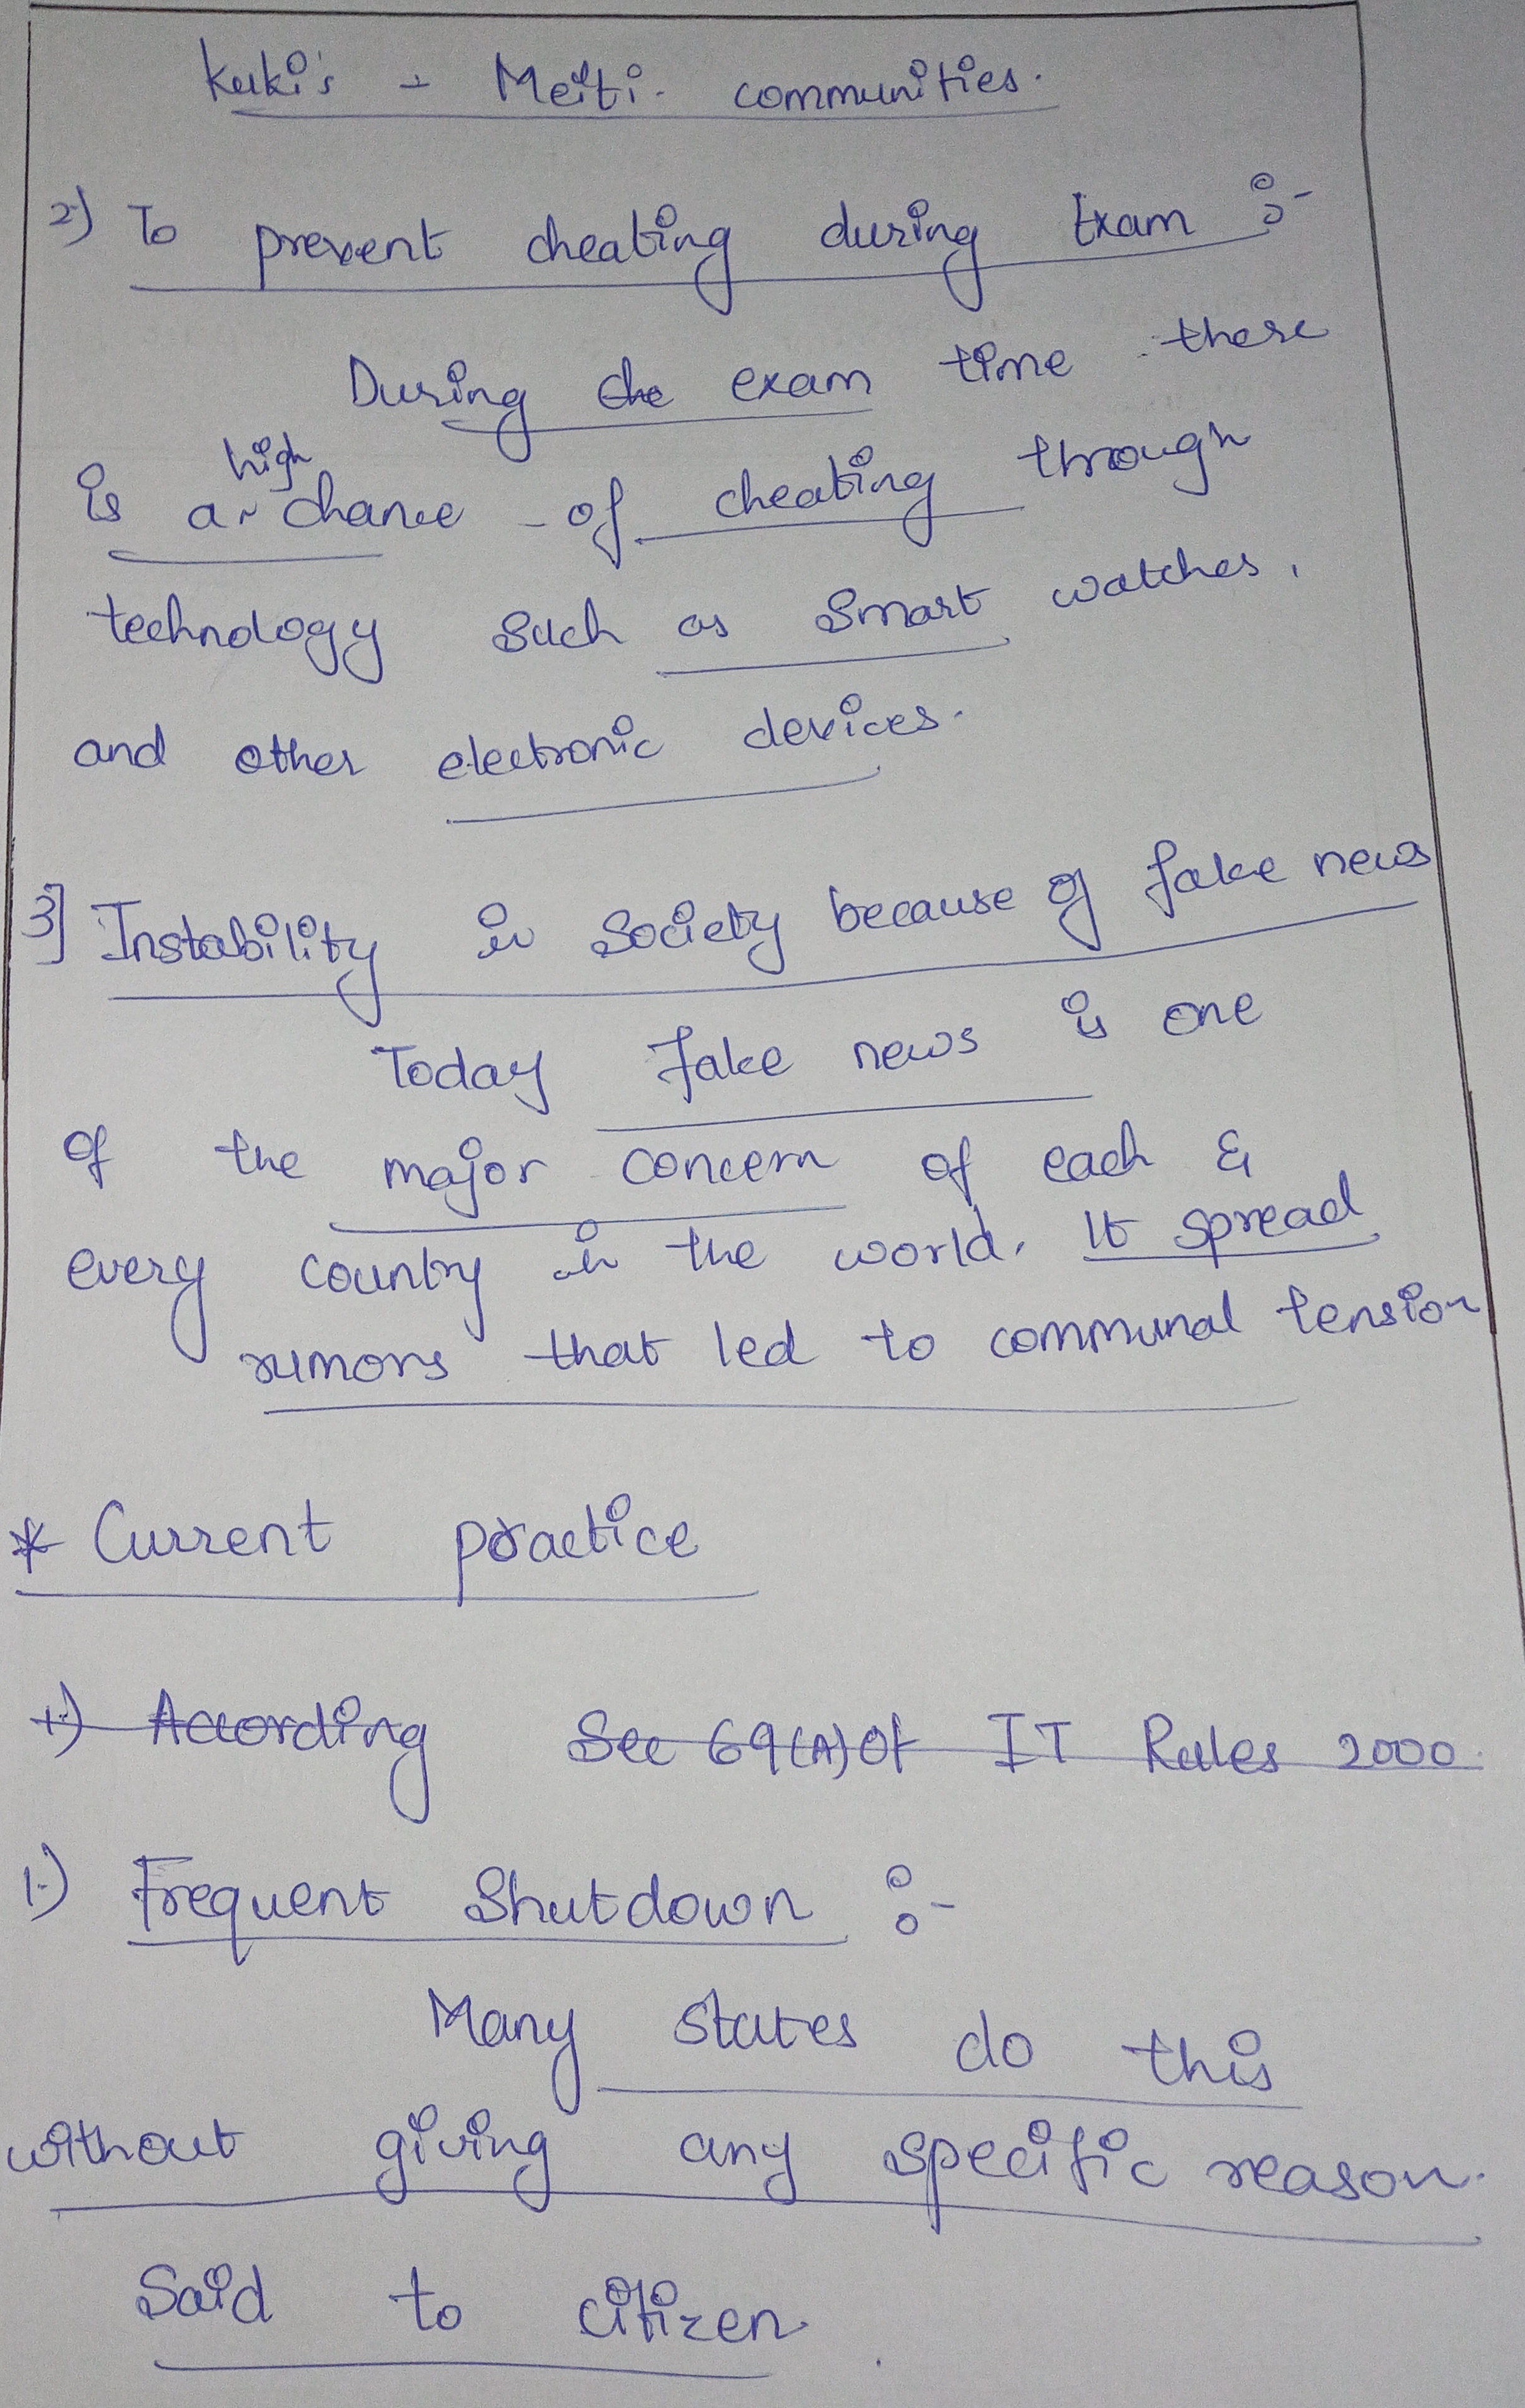 Kuki's - Meiti. communities.
2) To prevent cheating during Exam :-
During the exam time there
is a high chance of cheating through
technology such as smart watches,
and other electronic devices.
3] Instability in society because of fake news
Today fake news is one
of the major concern of each &
every country in the world. It spread
rumors that led to communal tension
* Current practice
1.) According Sec 69(A) of IT Rules 2000.
1.) Frequent Shutdown :-
Many states do this
without giving any specific reason.
Said to citizen.